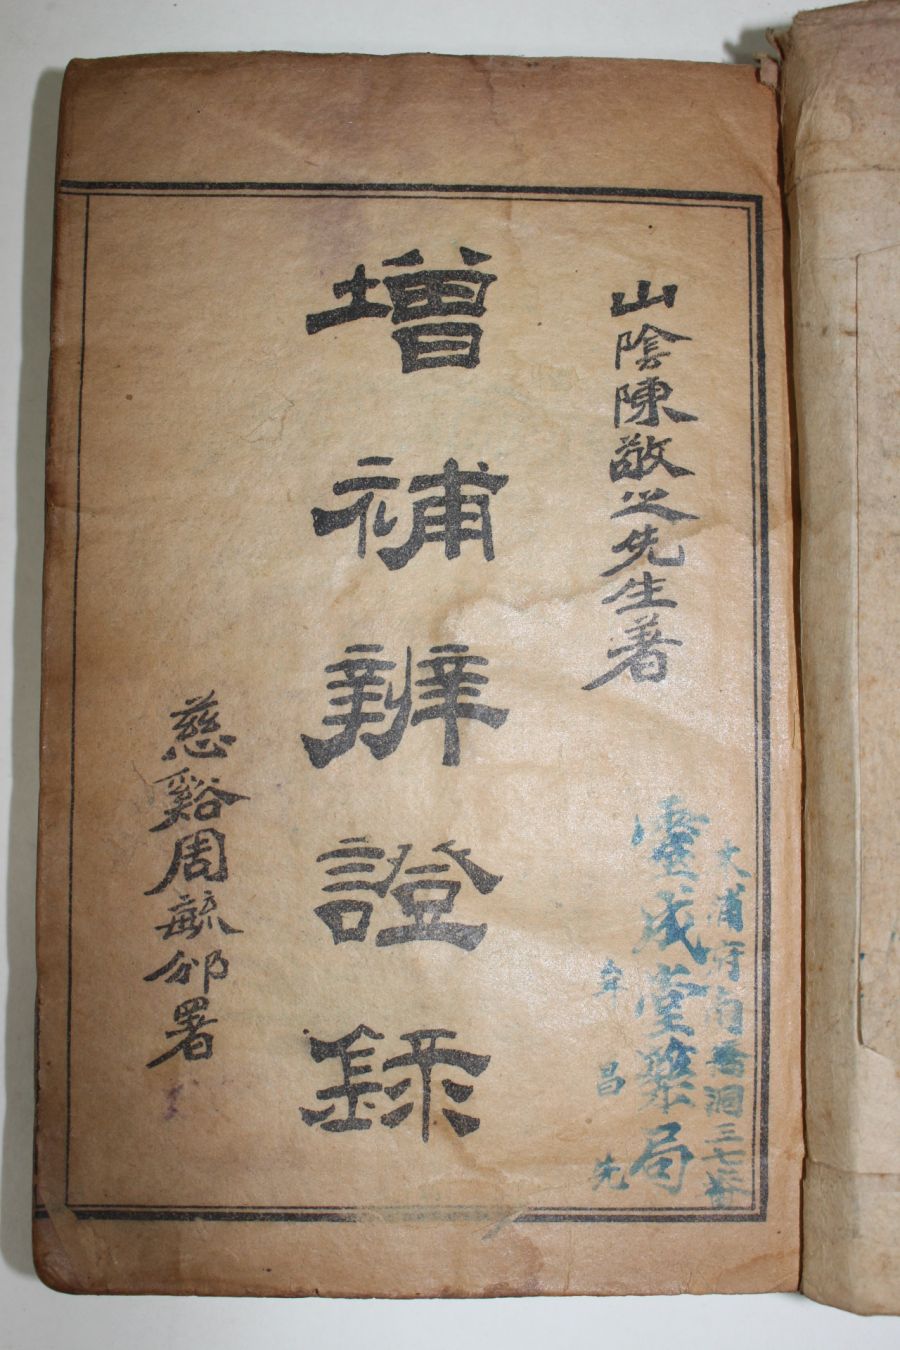 山陰陳敬之先生著
增補辨證錄
慈谿周毓邠署
大浦府南橋洞三七番
靈成堂藥局
昌先